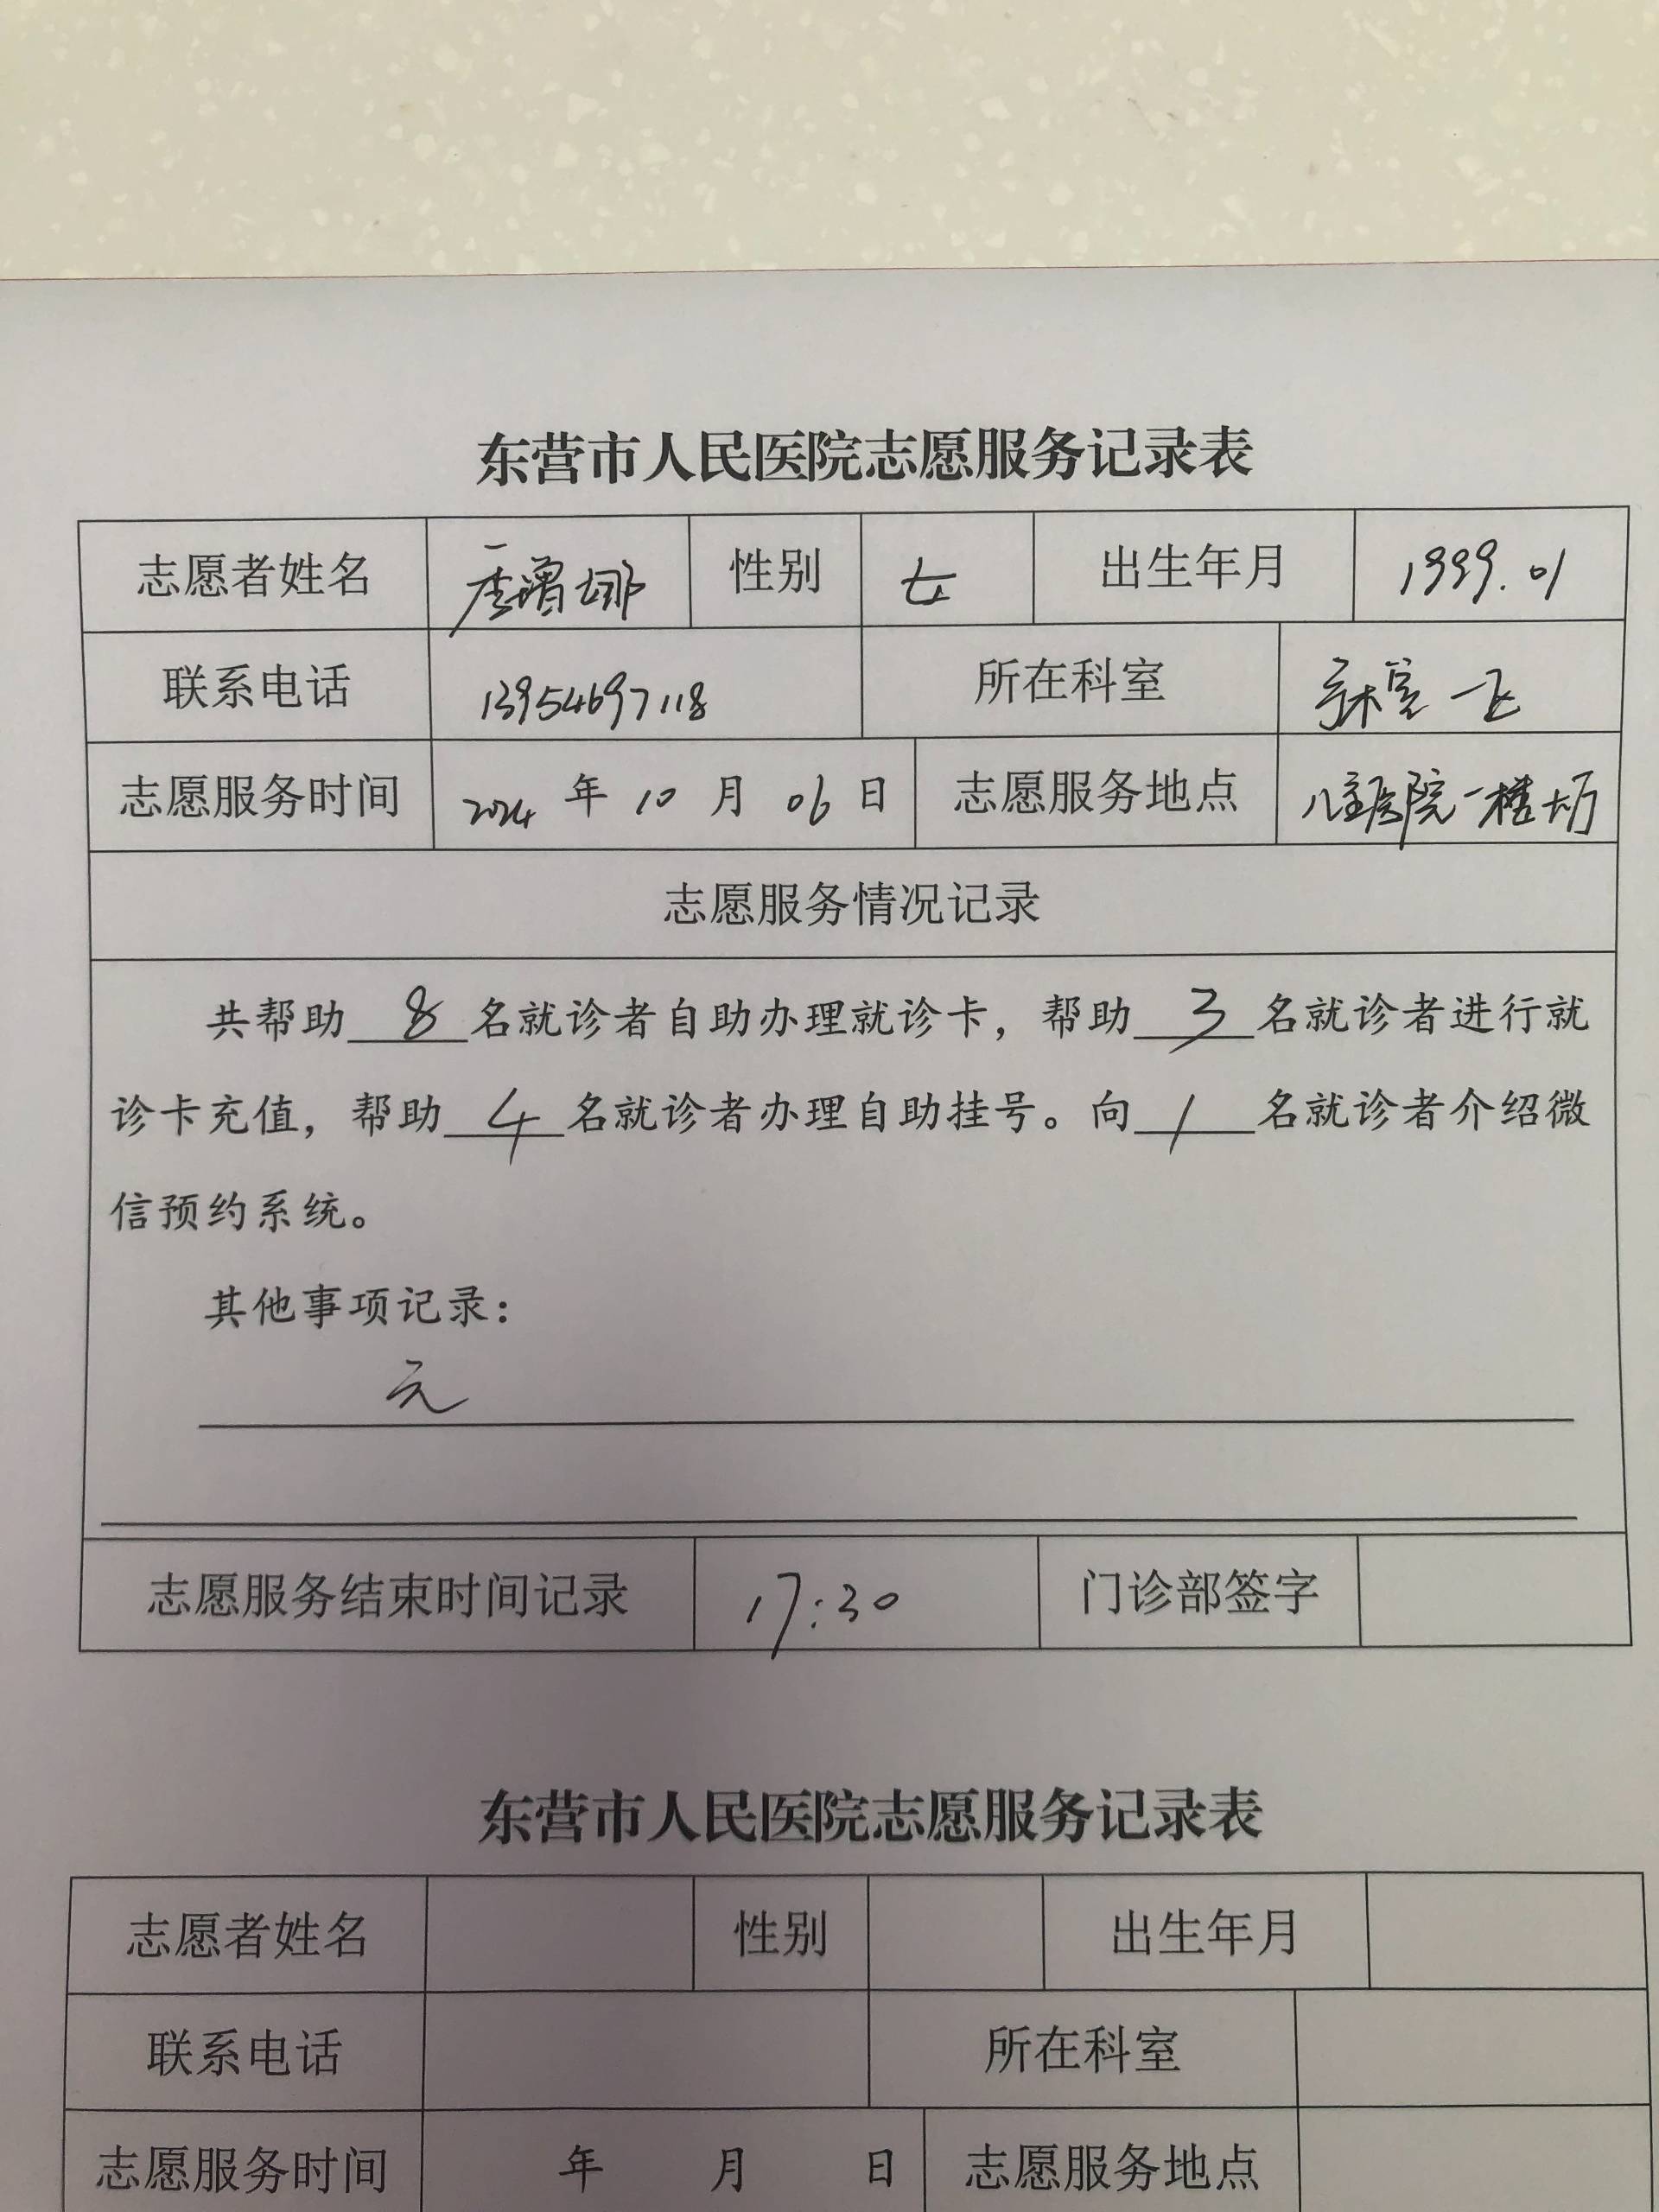 东营市人民医院志愿服务记录表
志愿者姓名 性别 女 出生年月 1999.01
联系电话 13954697118 所在科室
志愿服务时间 2024 年 10 月 06 日 志愿服务地点
志愿服务情况记录
共帮助 8 名就诊者自助办理就诊卡，帮助 3 名就诊者进行就
诊卡充值，帮助 4 名就诊者办理自助挂号。向 1 名就诊者介绍微
信预约系统。
其他事项记录：
无
志愿服务结束时间记录 17:30 门诊部签字
东营市人民医院志愿服务记录表
志愿者姓名 性别 出生年月
联系电话 所在科室
志愿服务时间 年 月 日 志愿服务地点